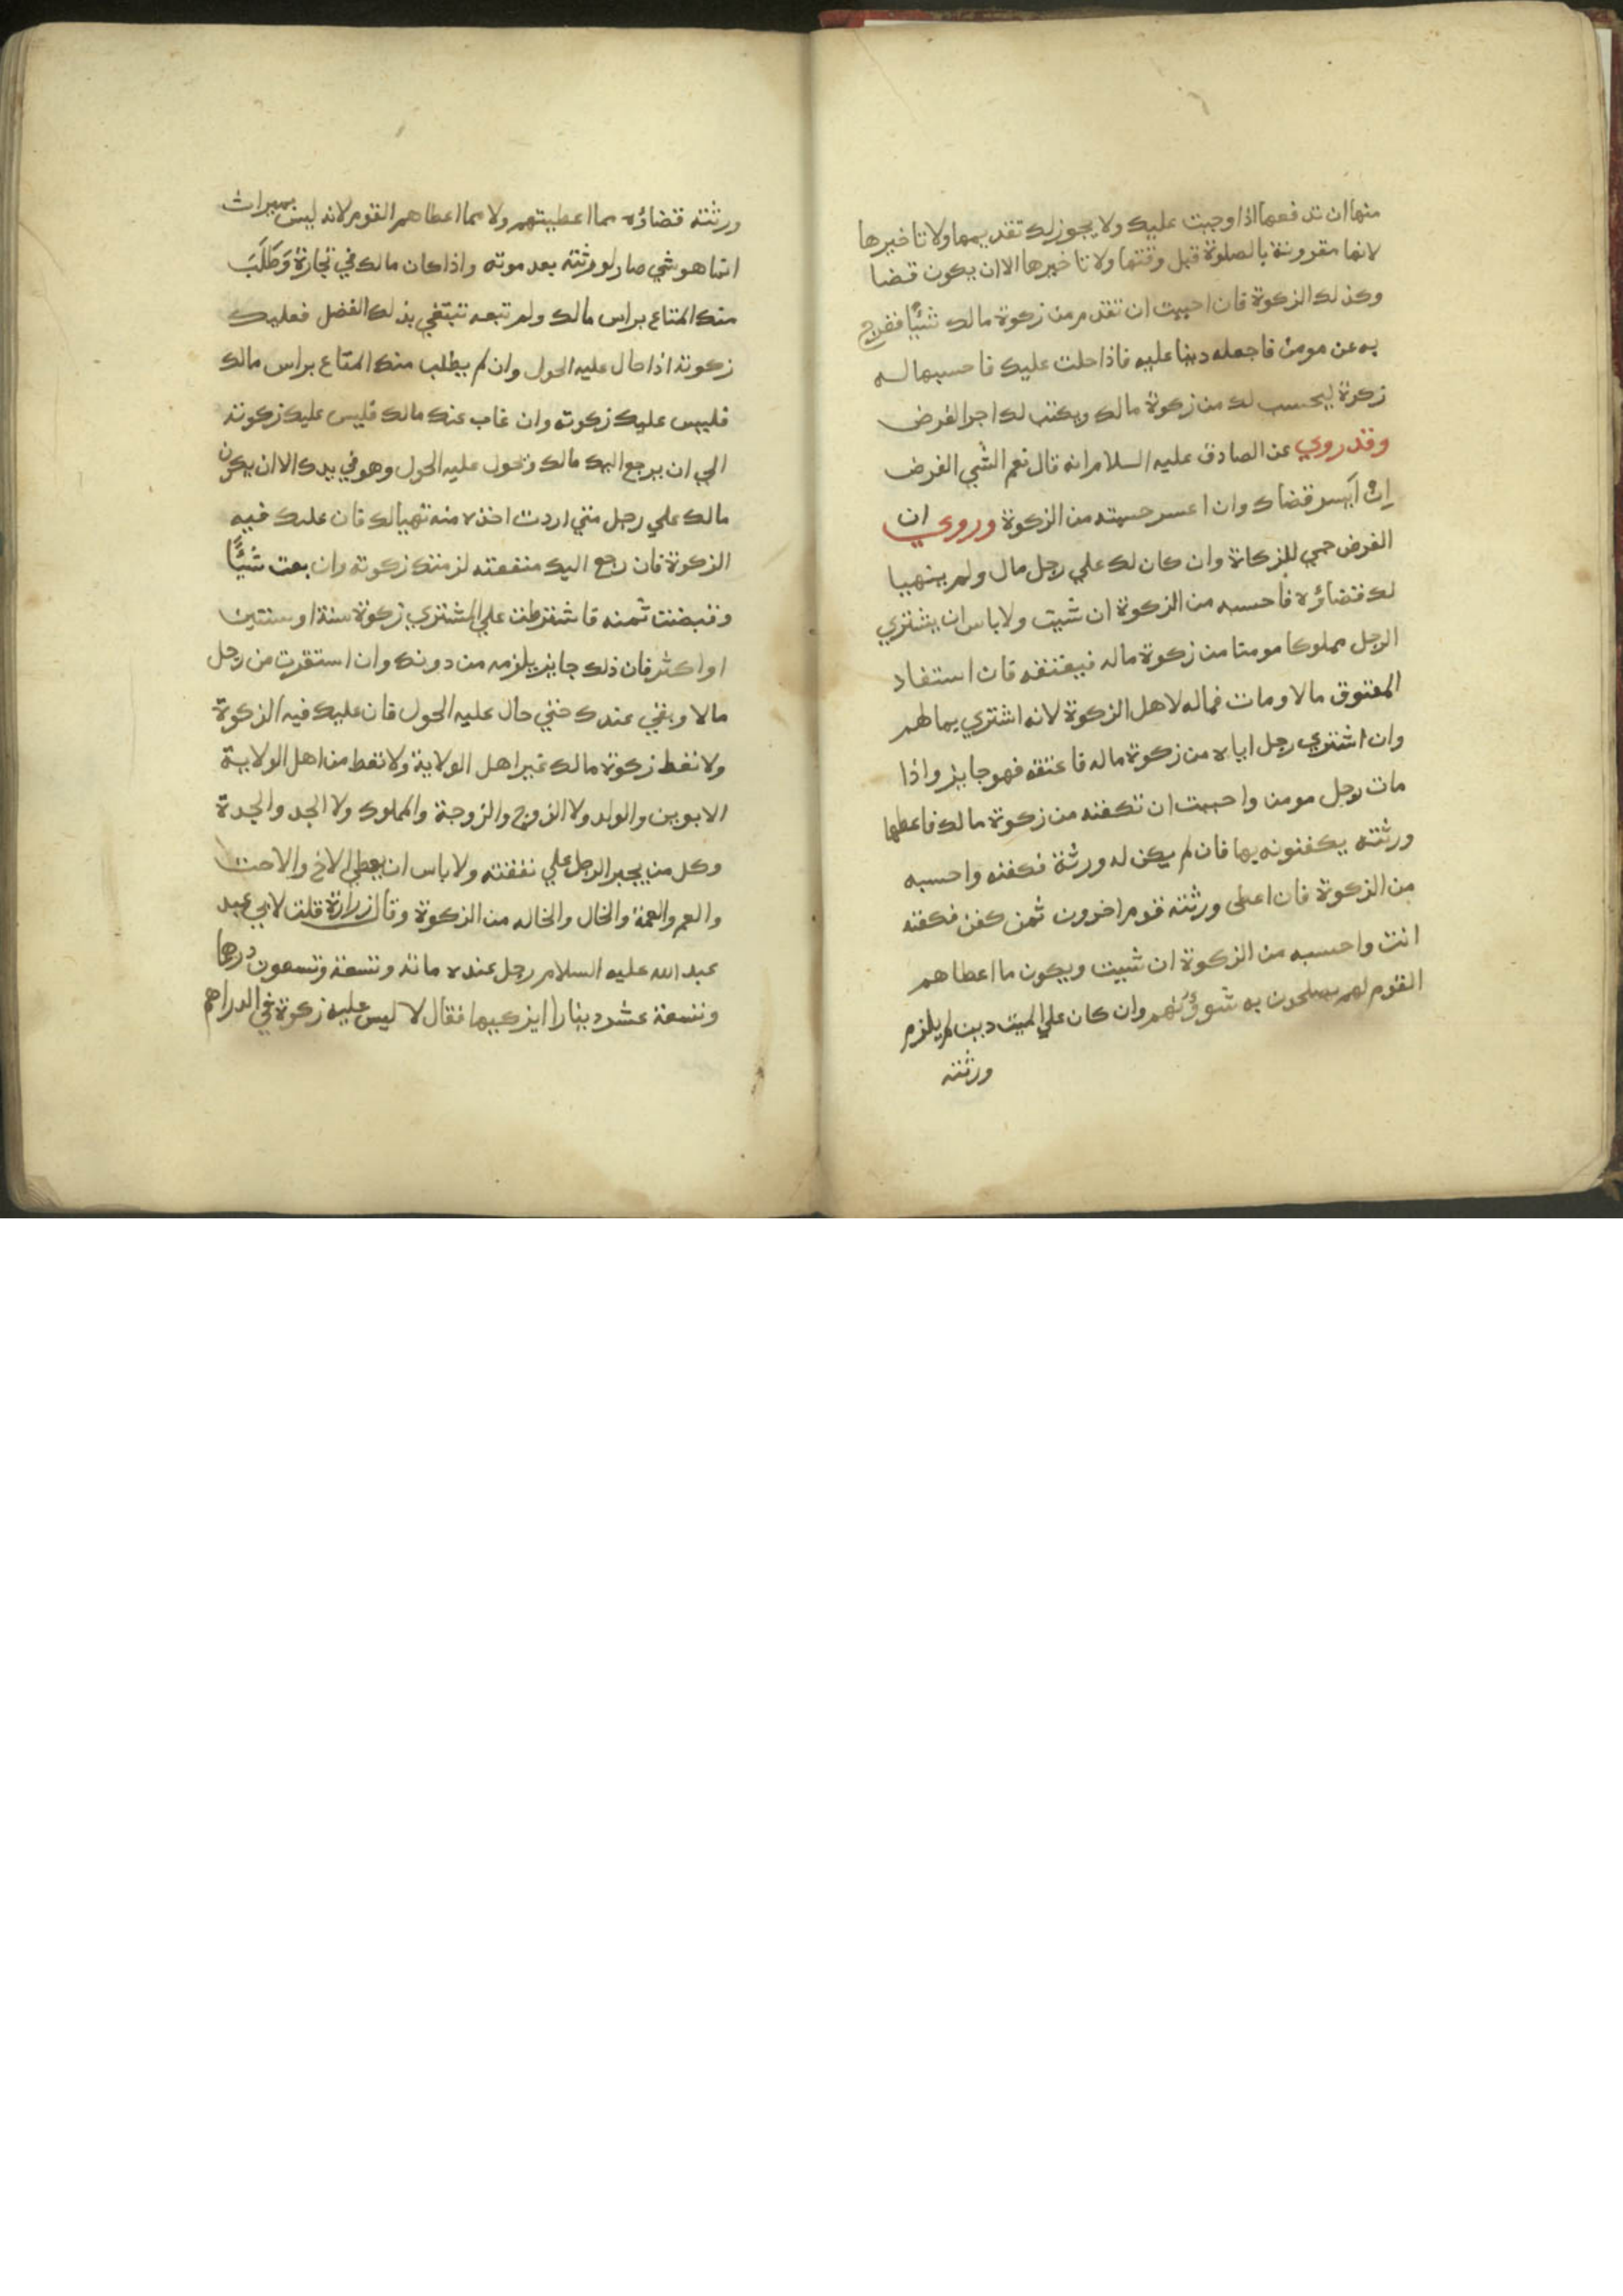 منها ان تدفعها اذا وجبت عليك ولا يجوز لك تقديمها ولا تاخيرها
لانها مقرونة بالصلوة قبل وقتها ولا تاخيرها الا ان يكون قضا
وكذلك الزكوة فان احببت ان تقدم من زكوة مالك شئًا ففرج
به عن مومن فاجعله دينا عليه فاذا حلت عليك فاحسبها له
زكوة ليحسب لك من زكوة مالك ويكتب لك اجر القرض
وقد روي عن الصادق عليه السلام انه قال نعم الشي القرض
ان أيسر قضاك وان اعسر حسبته من الزكوة وروي ان
القرض حمي للزكاة وان كان لك علي رجل مال ولم يتهيا
لك قضاؤه فاحسبه من الزكوة ان شيت ولا باس ان يشتري
الرجل مملوكا مومنا من زكوة ماله فيعتقه فان استفاد
المعتوق مالا ومات فماله لاهل الزكوة لانه اشتري بمالهم
وان اشتري رجل اباه من زكوة ماله فاعتقه فهو جايز واذا
مات رجل مومن واحببت ان تكفنه من زكوة مالك فاعطها
ورثته يكفنونه بها فان لم يكن له ورثة فكفنه واحسبه
من الزكوة فان اعطى ورثته قوم اخرون ثمن كفن فكفنه
انت واحسبه من الزكوة ان شيت ويكون ما اعطاهم
القوم لهم يصلحون به شوؤنهم وان كان علي الميت دين لم يلزم
ورثته
ورثته قضاؤه مما اعطيتهم ولا مما اعطاهم القوم لانه ليس بميراث
انما هو شي صار لورثته بعد موته واذا كان مالك في تجارة وَطَلَبَ
منك المتاع براس مالك ولم تبعه تبتغي بذلك الفضل فعليك
زكوته اذا حال عليه الحول وان لم يطلب منك المتاع براس مالك
فليس عليك زكوته وان غاب عنك مالك فليس عليك زكوته
الي ان يرجع اليك مالك وتحول عليه الحول وهو في يدك الا ان يكون
مالك علي رجل متي اردت اخذه منه تهيا لك فان عليك فيه
الزكوة فان رجع اليك منفعته لزمتك زكوته وان بعت شئًا
وقبضت ثمنه فاشترطت علي المشتري زكوة سنة او سنتين
او اكثر فان ذلك جايز يلزمه من دونك وان استقرت من رجل
مالا وبقي عندك حتي حال عليه الحول فان عليك فيه الزكوة
ولا تعط زكوة مالك غير اهل الولاية ولا تعط من اهل الولاية
الابوين والولد ولا الزوج والزوجة والمملوك ولا الجد والجدة
وكل من يجبر الرجل علي نفقته ولا باس ان يعطي الاخ والاخت
والعم والعمة والخال والخاله من الزكوة وقال زرارة قلت لابي عبد
عبد الله عليه السلام رجل عنده مائة وتسعة وتسعون درهما
وتسعة عشر دينارا ايزكيها فقال لا ليس عليه زكوة في الدراهم